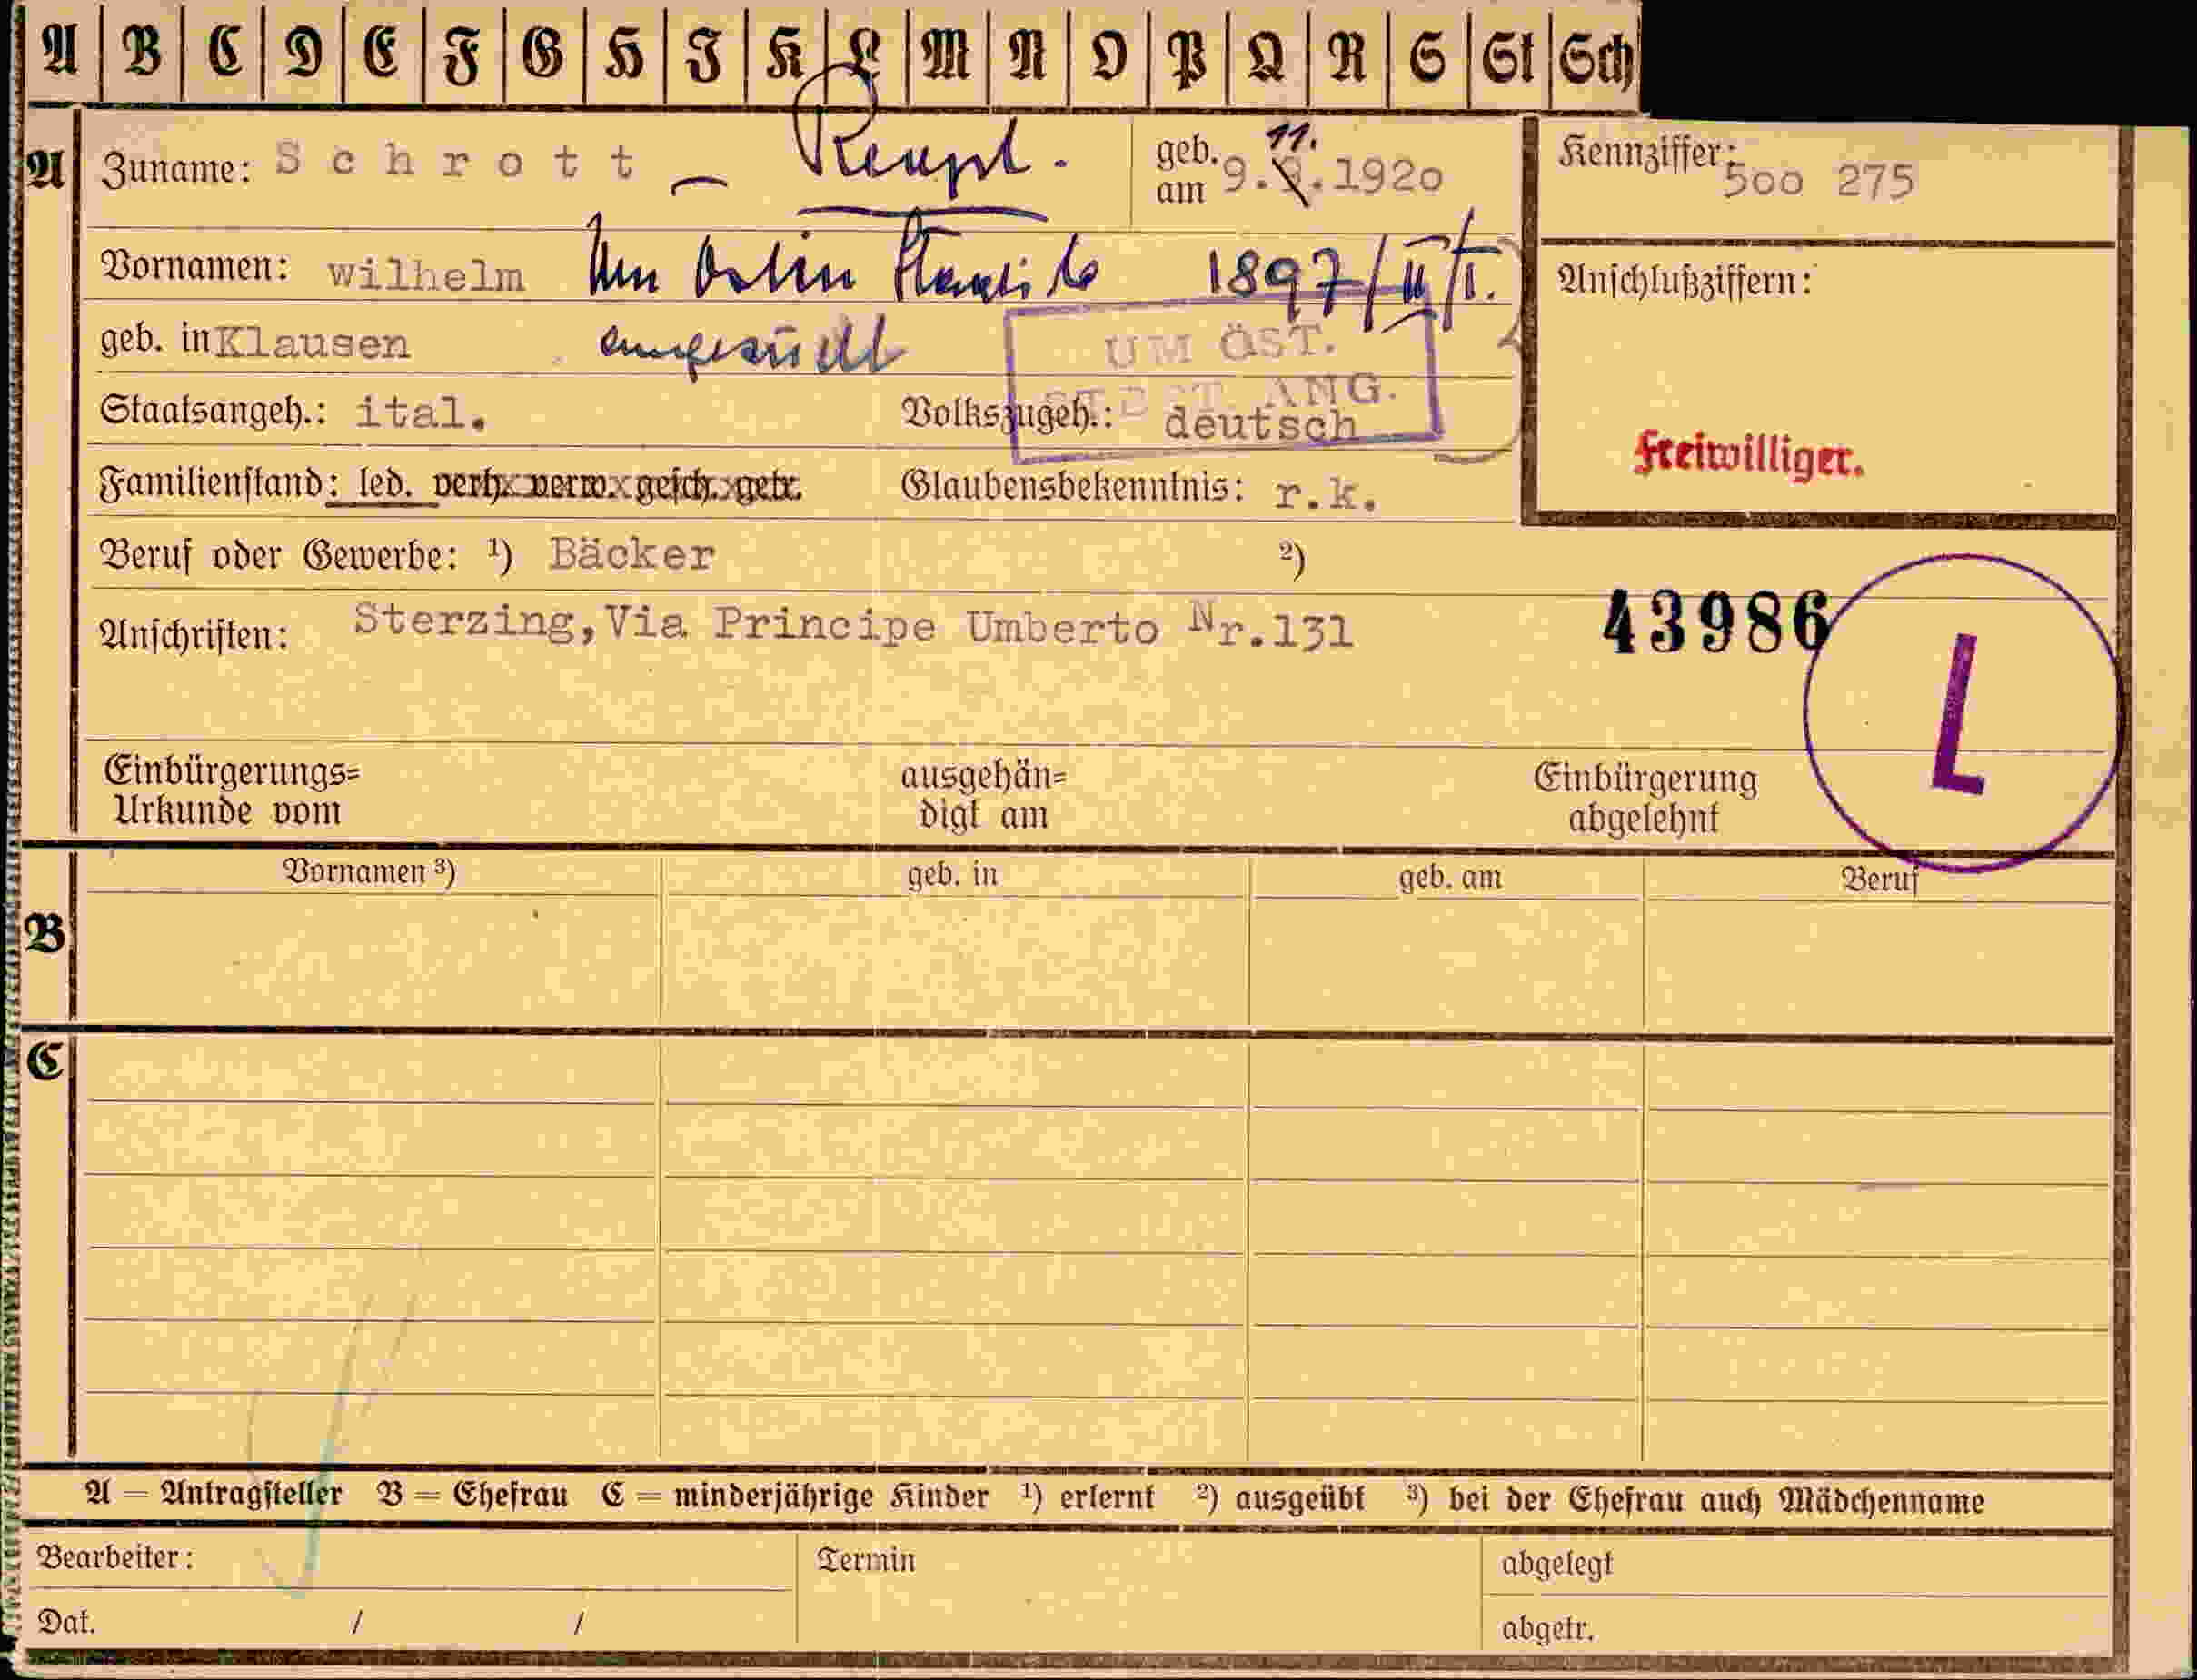 A B C D E F G H I K L M N O P Q R S St Sch
A Zuname: Schrott – geb. am 9.9.1920 11.
Kennziffer: 500 275
Vornamen: wilhelm Um 1897/II/I.
Anschlußziffern:
geb. in Klausen angesucht UM ÖST.
ANG.
Staatsangeh.: ital. Volkszugeh.: deutsch
Freiwilliger.
Familienstand: led. verh. verw. gesch. getr. Glaubensbekenntnis: r.k.
Beruf oder Gewerbe: ¹) Bäcker ²)
Anschriften: Sterzing,Via Principe Umberto Nr.131 43986
L
Einbürgerungs= ausgehän= Einbürgerung
Urkunde vom digt am abgelehnt
Vornamen ³) geb. in geb. am Beruf
B
C
A = Antragsteller B = Ehefrau C = minderjährige Kinder ¹) erlernt ²) ausgeübt ³) bei der Ehefrau auch Mädchenname
Bearbeiter: Termin abgelegt
Dat. / / abgetr.